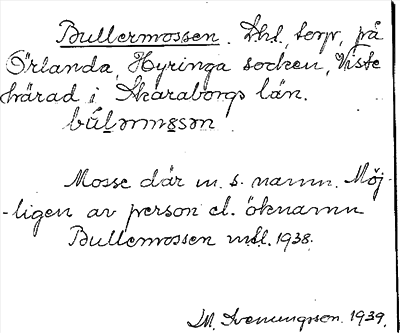 Bullermossen. Lhl, torp, på
Örlanda, Hyringa socken, Viste
härad i Skaraborgs län.
búlǝrmɷsǝn
Mosse där m. s. namn. Möj-
-ligen av person el. öknamn
Bullemossen mtl. 1938.
M. Svenungsson. 1939.